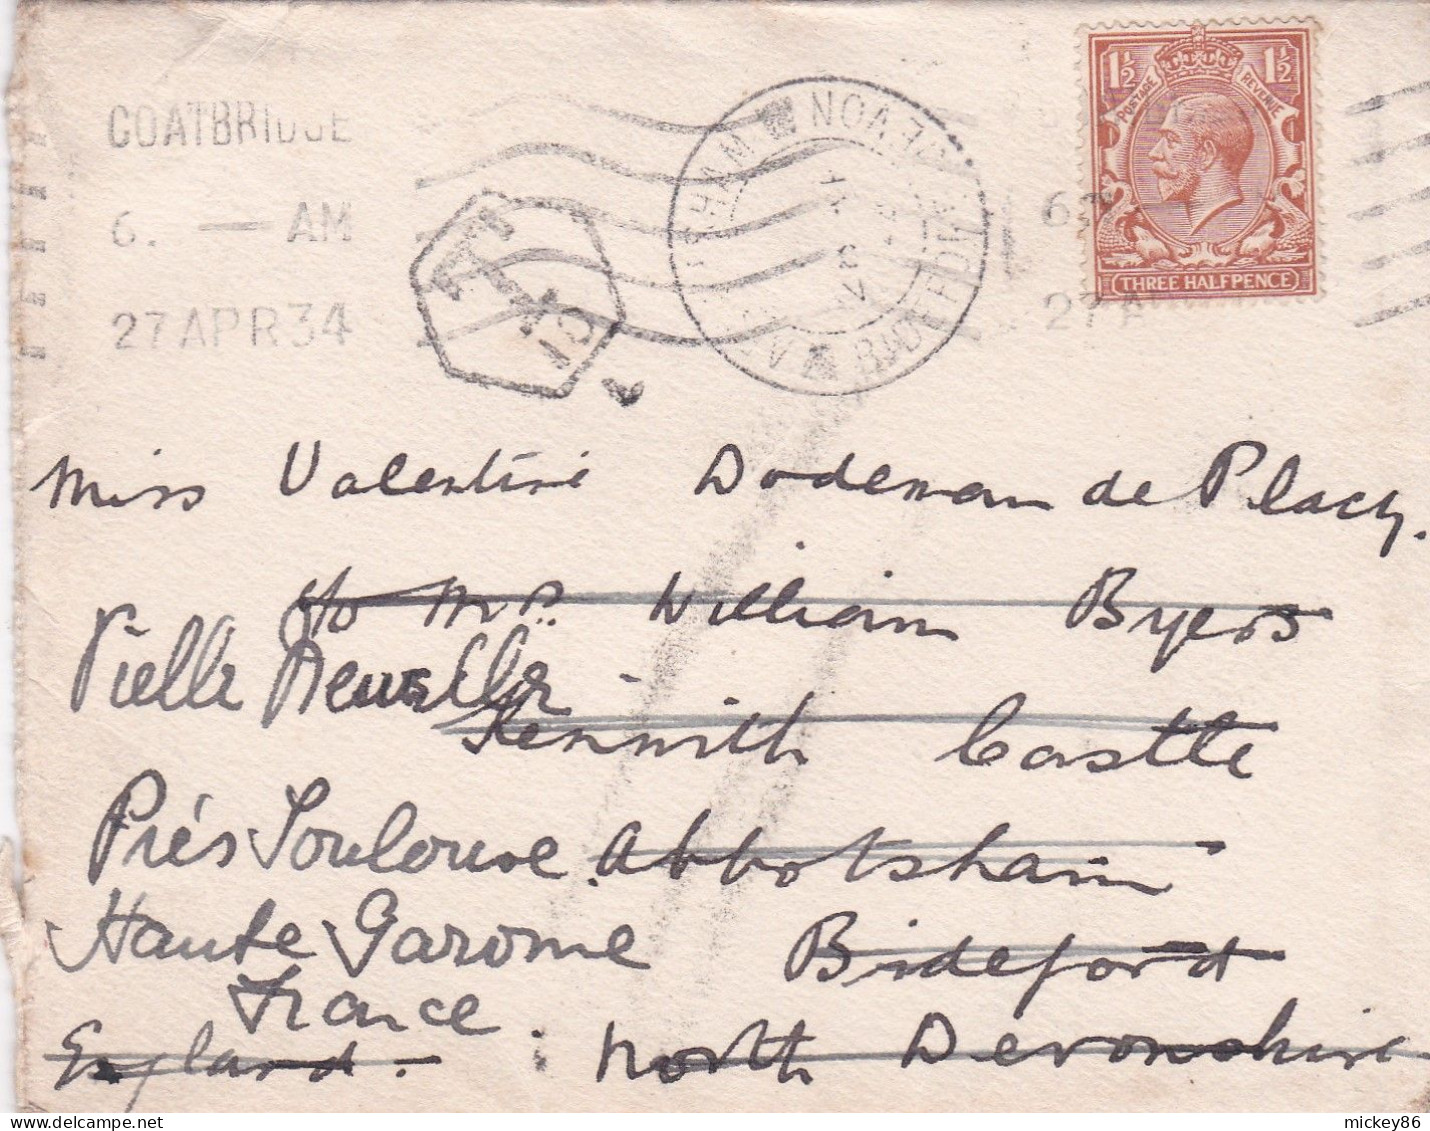 COATBRIDGE
6. — AM
27 APR 34
1½ 1½
POSTAGE REVENUE
THREE HALFPENCE
6.
27 A
DEVON
T
15
Miss Valentine Dodeman de Placy.
c/o Mrs. William Byers
Vielle
Kenwith Castle
Près Toulouse
Abbotsham
Haute Garonne
Bideford
France.
England. North Devonshire
mickey86